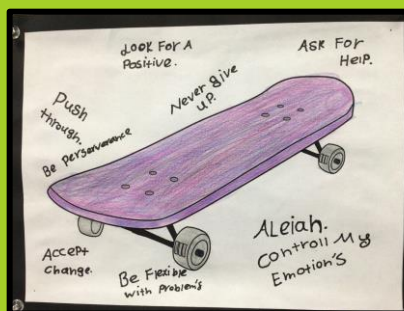 Look For A
Positive.
Ask For
Help.
Never give
up.
Push
through.
Be perserverance
Accept
Change.
Be Flexible
with Problem's
Aleiah.
Controll My
Emotion's